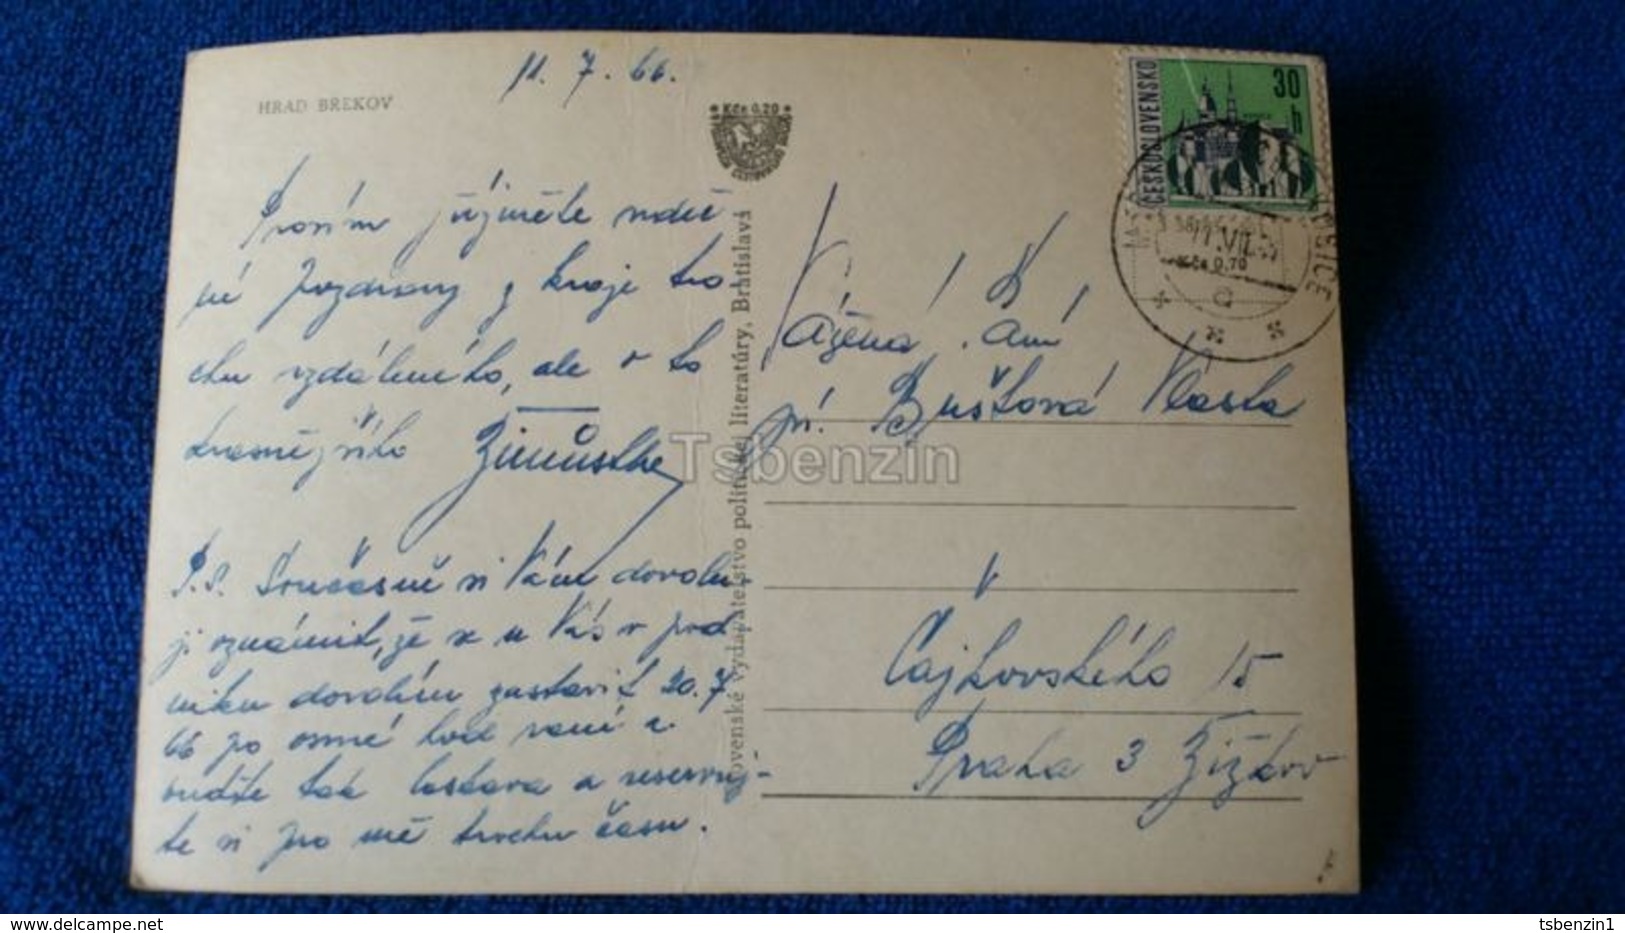 HRAD BREKOV
11. 7. 66.
Kčs 0.20
Prosím přijměte srdeč
né pozdravy z kraje tro
chu vzdáleného, ale o to
krásnějšího
P.S. Současně si Vám dovolu-
ji oznámit, že se u Vás v pod
niku dovolím zastavit 20.7
66 po osmé hod ranní a
buďte tak laskava a reservuj-
te si pro mě trochu času.
Slovenské vydavateľstvo politickej literatúry, Bratislava
ČESKOSLOVENSKO
30
h
Kčs 0.70
Vážená Paní
pí. Buštová Vlasta
Čajkovského 15
Praha 3 Žižkov
Tsbenzin
delcampe.net
tsbenzin1